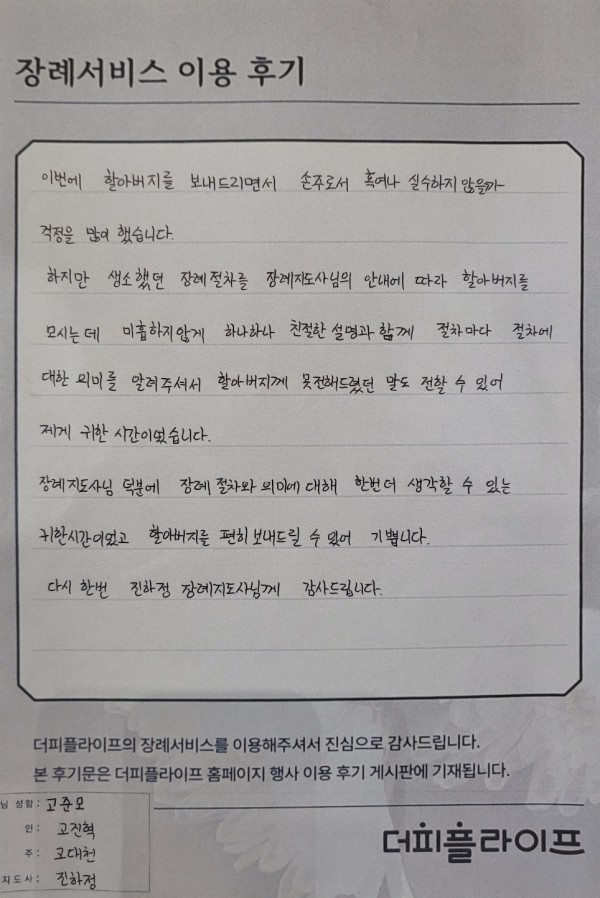 장례서비스 이용 후기
이번에 할아버지를 보내드리면서 손주로서 혹여나 실수하지 않을까
걱정을 많이 했습니다.
하지만 생소했던 장례절차를 장례지도사님의 안내에 따라 할아버지를
모시는데 미흡하지않게 하나하나 친절한 설명과 함께 절차마다 절차에
대한 의미를 알려주셔서 할아버지께 못전해드렸던 말도 전할 수 있어
제게 귀한 시간이었습니다.
장례지도사님 덕분에 장례 절차와 의미에 대해 한번더 생각할 수 있는
귀한시간이었고 할아버지를 편히 보내드릴 수 있어 기쁩니다.
다시 한번 진하정 장례지도사님께 감사드립니다.
더피플라이프의 장례서비스를 이용해주셔서 진심으로 감사드립니다.
본 후기문은 더피플라이프 홈페이지 행사 이용 후기 게시판에 기재됩니다.
님 성함: 고준모
인: 고진혁
주: 고대천
지도사: 진하정
더피플라이프